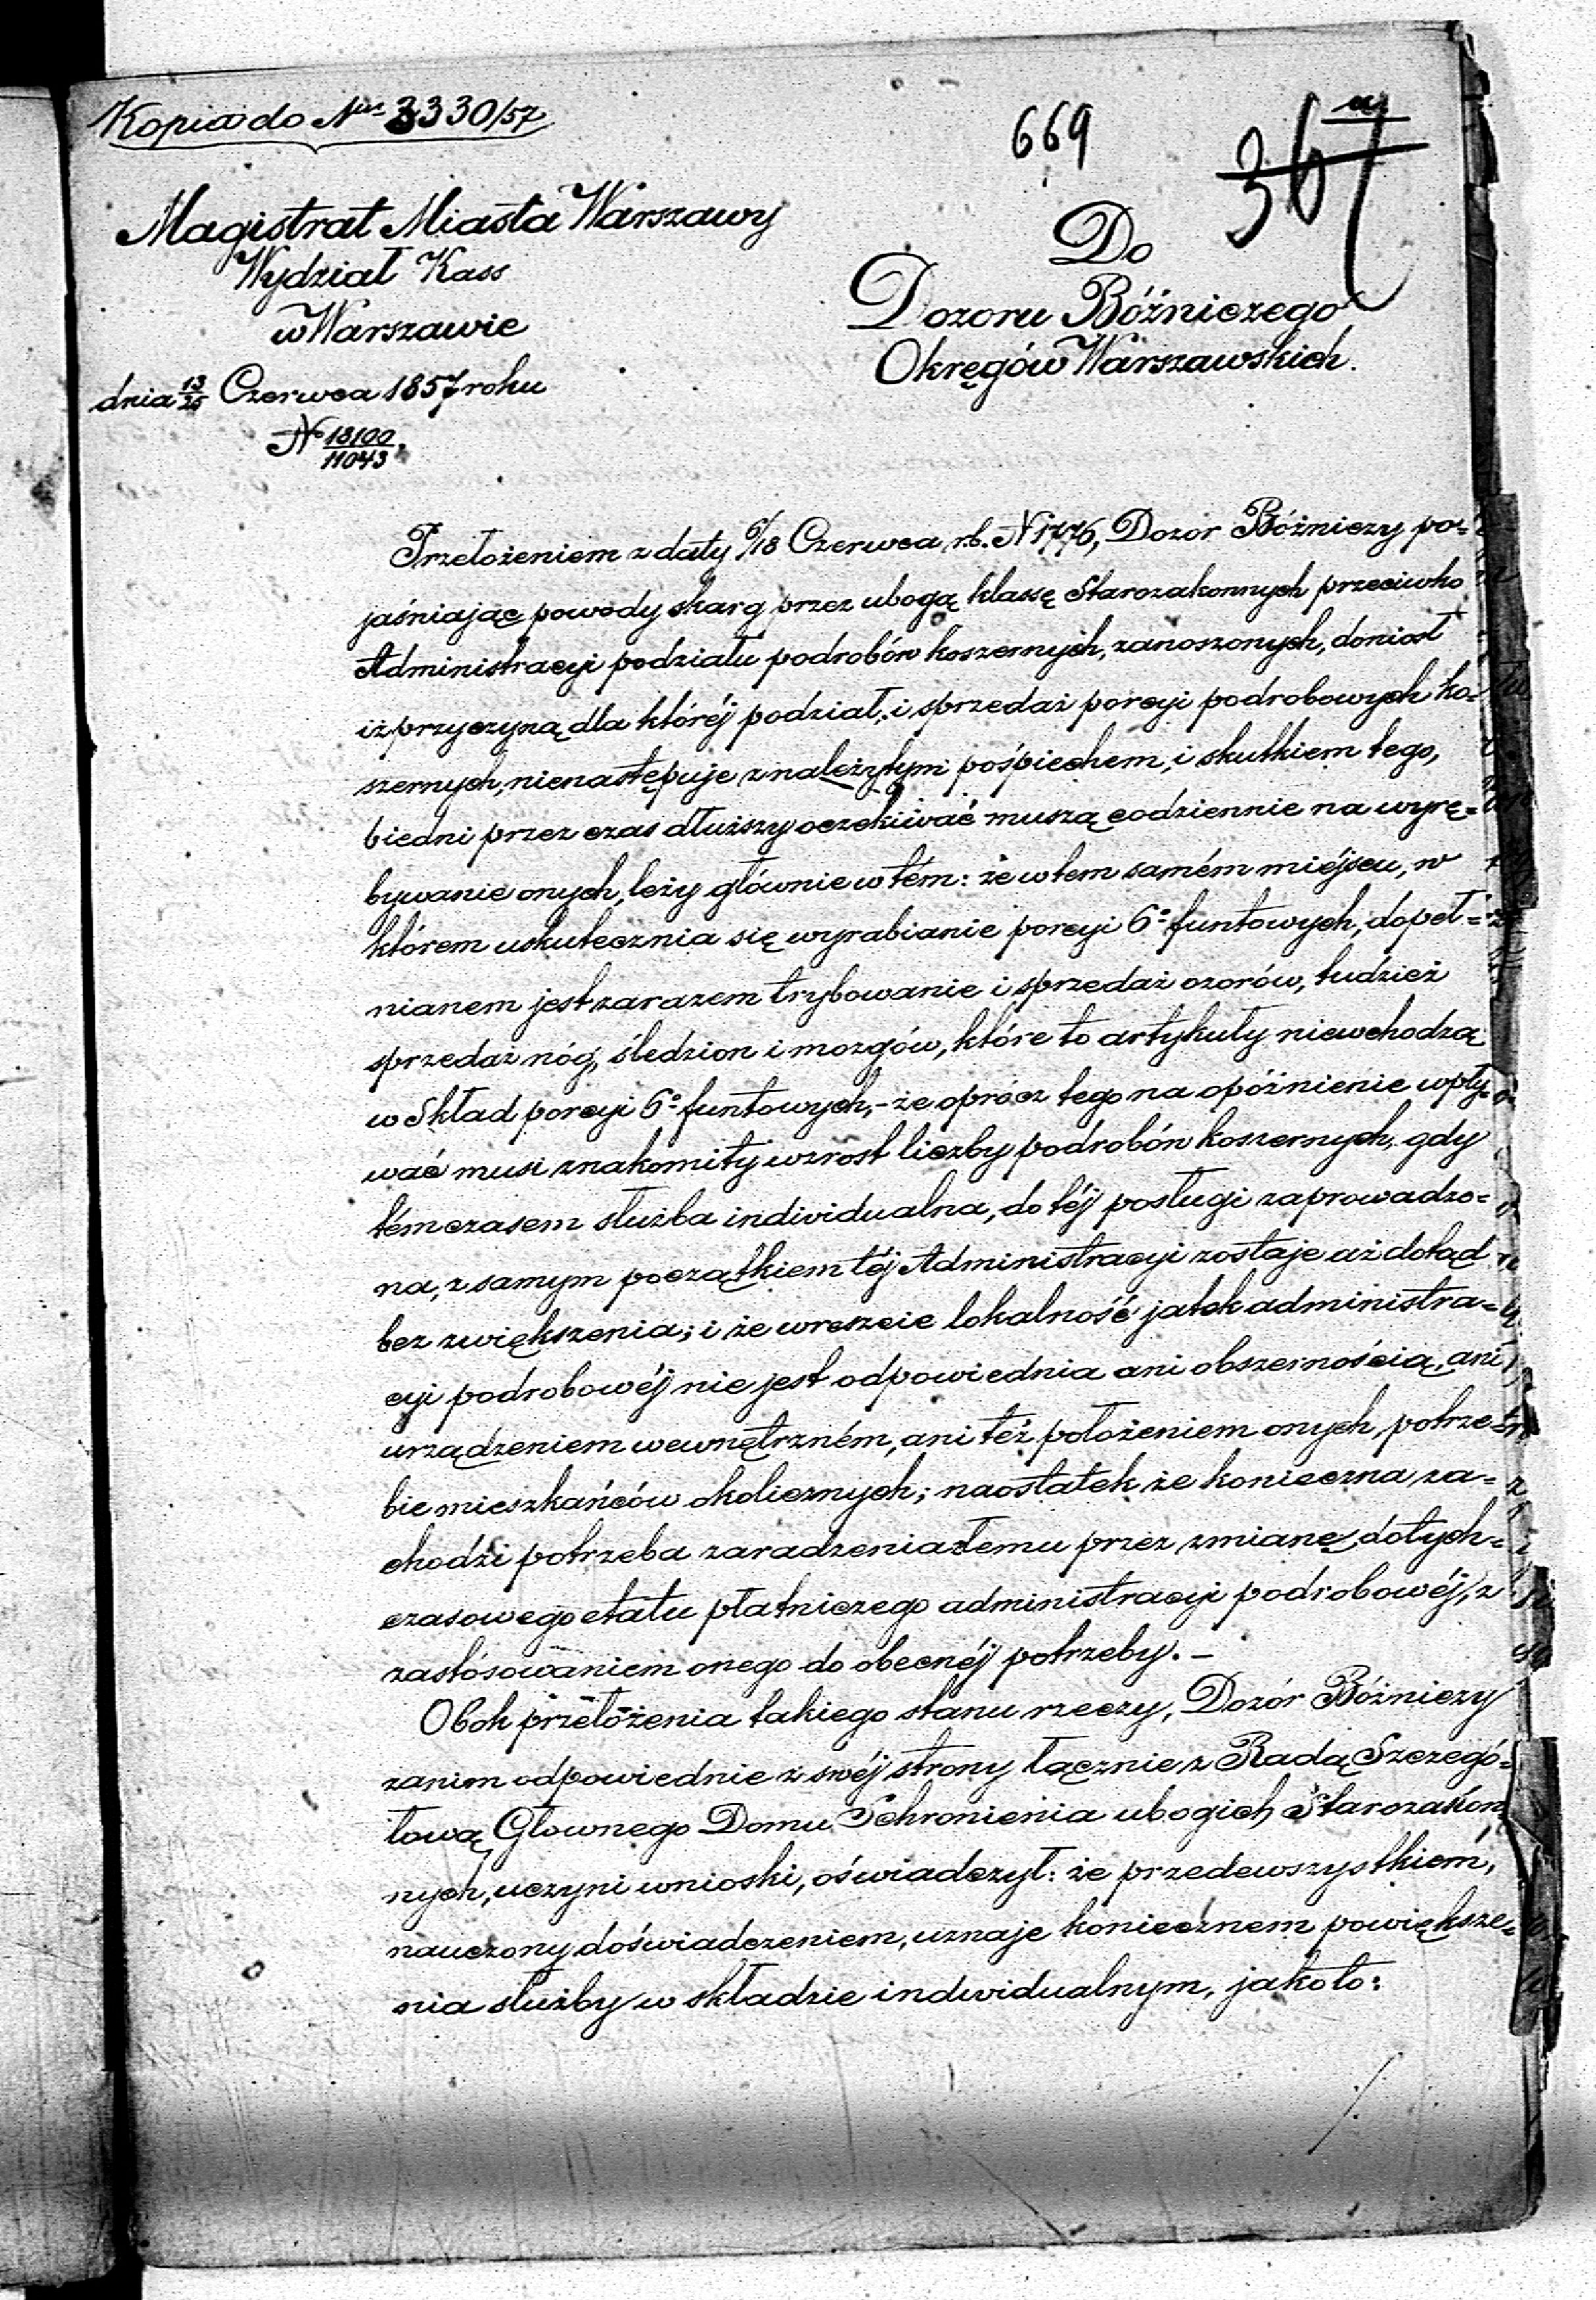 Kopia do Nru 3330/57
669
367
Magistrat Miasta Warszawy
Wydział Kass
w Warszawie
dnia 13/25 Czerwca 1857 roku
N 18100/11043
Do
Dozoru Bóźniczego
Okręgów Warszawskich.
Przełożeniem z daty 6/18 Czerwca rb. N 1776, Dozór Bóżniczy po-
jaśniając powody skarg przez ubogą klassę Starozakonnych przeciwko
Administracyi podziału podrobów koszernych, zanoszonych, doniosł
iż przyczyną dla któréj podział, i sprzedaż porcyi podrobowych ko-
szernych, nienastępuje z należytym pośpiechem, i skutkiem tego,
biedni przez czas dłuższy oczekiwać muszą codziennie na wyrę-
bywanie onych, leży głównie w tém: że w tem samém miéjscu, w
którem uskutecznia się wyrabianie porcyi 6º funtowych, dopeł-
nianem jest zarazem trybowanie i sprzedaż ozorów, tudzież
sprzedaż nóg, śledzion i mozgów, które to artykuły niewchodzą
w Skład porcyi 6º funtowych, - że oprócz tego na opóźnienie wpły-
wać musi znakomity wzrost liczby podrobów koszernych, gdy
témczasem służba individualna, do téj posługi zaprowadzo-
na, z samym początkiem téj Administracyi zostaje aż dotąd
bez zwiększenia; i że wreszcie lokalność jatek administra-
cyi podrobowéj nie jest odpowiednia ani obszernością, ani
urządzeniem wewnętrzném, ani też położeniem onych, potrze-
bie mieszkańców okolicznych; naostatek że konieczna za-
chodzi potrzeba zaradzenia temu przez zmianę dotych-
czasowego etatu płatniczego administracyi podrobowéj, z
zastósowaniem onego do obecnéj potrzeby. -
Obok przełożenia takiego stanu rzeczy, Dozór Bóżniczy
zanim odpowiednie z swéj strony łącznie z Radą Szczegó-
łową Głownego Domu Schronienia ubogich Starozakon-
nych, uczyni wnioski, oświadczył: że przedewszystkiém,
nauczony doświadczeniem, uznaje koniecznem powiększe-
nia służby w składzie indwidualnym, jakoto:
./.